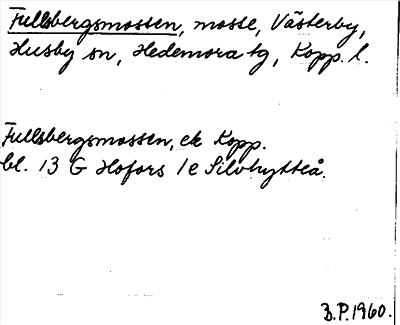 Fullsbergsmossen, mosse, Västerby,
Husby sn, Hedemora tg, Kopp. l.
Fullsbergsmossen, ek Kopp.
bl. 13 G Hofors 1e Silvhytteå.
B.P. 1960.